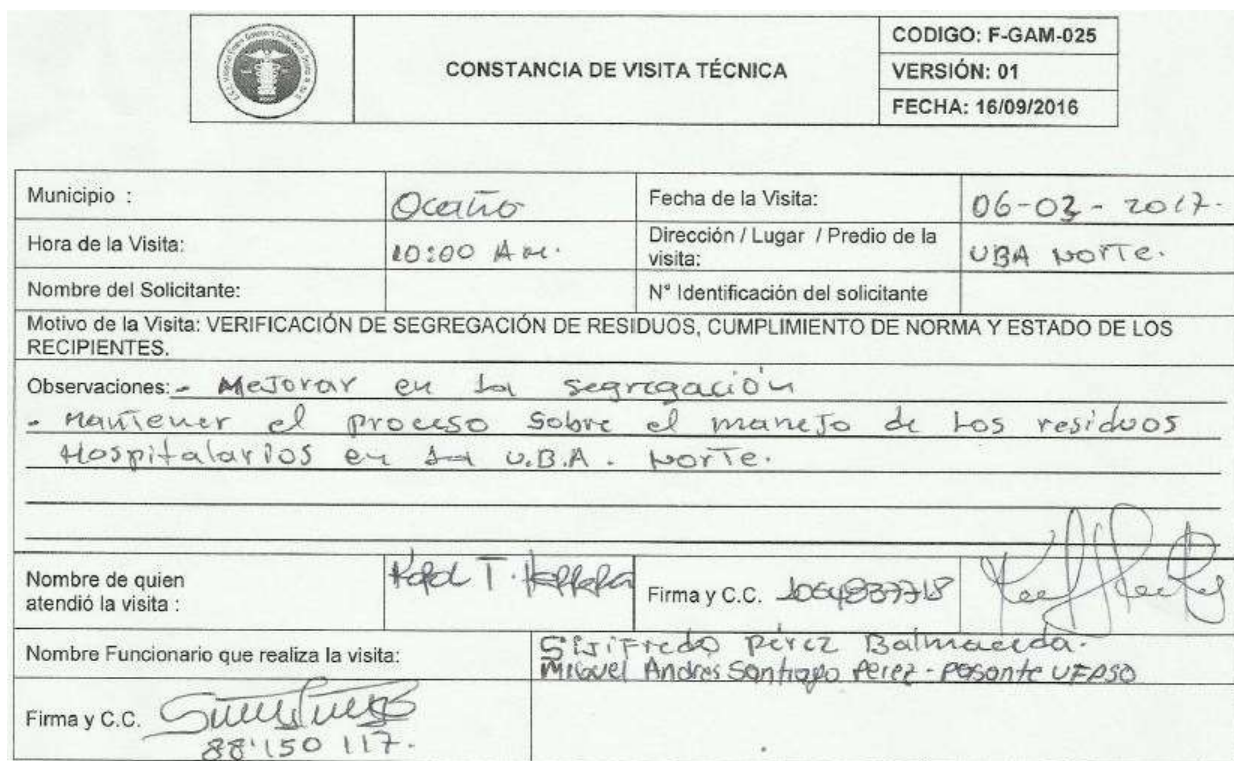 CONSTANCIA DE VISITA TÉCNICA
CODIGO: F-GAM-025
VERSIÓN: 01
FECHA: 16/09/2016
Municipio : Ocaña
Fecha de la Visita: 06-03-2017.
Hora de la Visita: 10:00 Am.
Dirección / Lugar / Predio de la
visita: UBA NorTe.
Nombre del Solicitante:
N° Identificación del solicitante
Motivo de la Visita: VERIFICACIÓN DE SEGREGACIÓN DE RESIDUOS, CUMPLIMIENTO DE NORMA Y ESTADO DE LOS
RECIPIENTES.
Observaciones: - MeJorar en La segregación
- Mantener el proceso sobre el maneJo de Los residuos
HospitalarIos en La U.B.A. NorTe.
Nombre de quien
atendió la visita :
Firma y C.C.
Nombre Funcionario que realiza la visita: Sijifredo Pérez Balmaceda.
Miguel Andres Santiago Perez - Pasante UFPSO
Firma y C.C.
88'150 117.